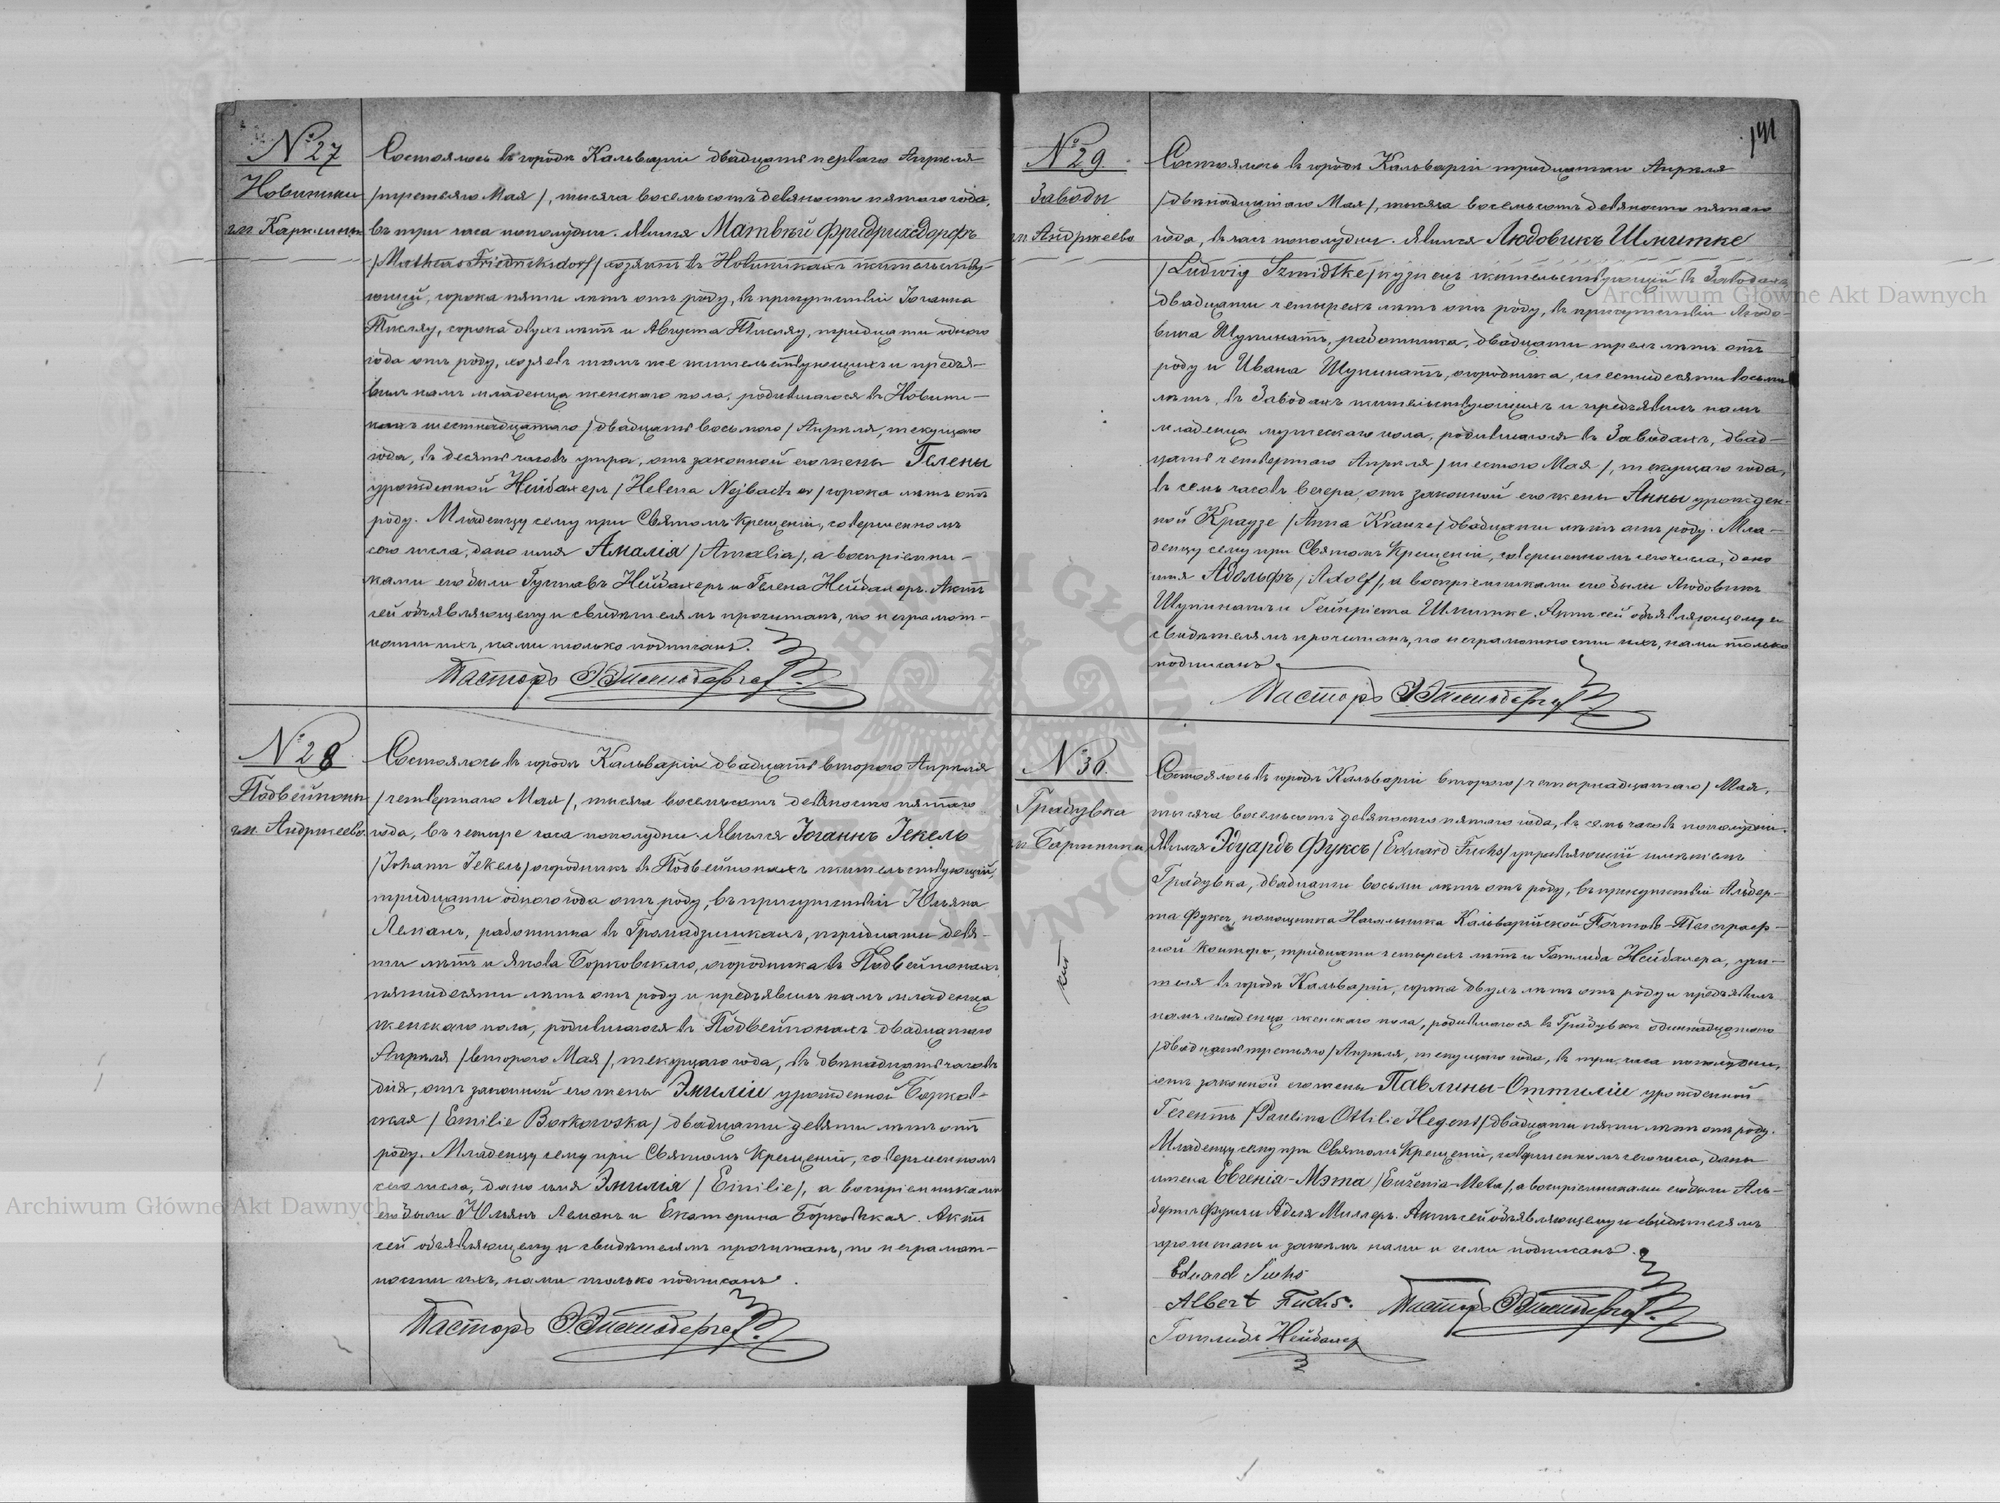 № 27
Новиники
гм. Карклины
Состоялось въ городѣ Кальваріи двадцать перваго Апрѣля
/третьяго Мая/, тысяча восемьсотъ девяносто пятаго года,
въ три часа пополудни. Явился Матвѣй Фридрихсдорфъ
/Matheas Friedriksdorf/ хозяинъ въ Новиникахъ жительству-
ющій, сорока пяти лѣтъ отъ роду, въ присутствіи Іоганна
сорока двухъ лѣтъ и Августа тридцати одного
года отъ роду, хозяевъ тамъ же жительствующихъ и предъя-
вилъ намъ младенца женскаго пола, родившагося въ Новини-
кахъ шестнадцатаго /двадцать восьмого/ Апрѣля, текущаго
года, въ десять часовъ утра, отъ законной его жены Гелены
урожденной Нейбахеръ /Helena Nejbacher/ сорока лѣтъ отъ
роду. Младенцу сему при Святомъ Крещеніи, совершенномъ
сего числа, дано имя Амалія /Amalia/, а воспріемни-
ками его были Густавъ Нейбахеръ и Гелена Нейбахеръ. Актъ
сей объявляющему и свидѣтелямъ прочитанъ, по неграмот-
ности ихъ, нами только подписанъ.
Пасторъ
№ 28
Подвейпони
гм. Андржеево
Состоялось въ городѣ Кальваріи двадцать второго Апрѣля
/четвертаго Мая/, тысяча восемьсотъ девяносто пятаго
года, въ четыре часа пополудни. Явился Іоганъ Іекель
/Johann Jekel/ огородникъ въ Подвейпоняхъ жительствующій,
тридцати одного года отъ роду, въ присутствіи Юльяна
Леманъ, работника въ Громадзишкахъ, тридцати девя-
ти лѣтъ и Якова Борковскаго, огородника въ Подвейпоняхъ
пятидесяти лѣтъ отъ роду и предъявилъ намъ младенца
женскаго пола, родившагося въ Подвейпоняхъ двадцатаго
Апрѣля /второго Мая/, текущаго года, въ двѣнадцать часовъ
дня, отъ законной его жены Эмиліи урожденной Борков-
ская /Emilie Borkowska/ двадцати девяти лѣтъ отъ
роду. Младенцу сему при Святомъ Крещеніи, совершенномъ
сего числа, дано имя Эмилія /Emilie/, а воспріемниками
его были Юльянъ Леманъ и Екатерина Борковская. Актъ
сей объявляющему и свидѣтелямъ прочитанъ, по неграмот-
ности ихъ, нами только подписанъ.
Пасторъ
191
№ 29
Заводы
гм. Андржеево
Состоялось въ городѣ Кальваріи тридцатаго Апрѣля
/двѣнадцатаго Мая/, тысяча восемьсотъ девяносто пятаго
года, въ часъ пополудни. Явился Людовикъ Шмитке
/Ludwig Szmidtke/ кузнецъ жительствующій въ Заводахъ,
двадцати четырехъ лѣтъ отъ роду, въ присутствіи Людо-
вика Шупинатъ, работника, двадцати трехъ лѣтъ отъ
роду и Ивана Шупинатъ, огородника, шестидесяти восьми
лѣтъ, въ Заводахъ жительствующихъ и предъявилъ намъ
младенца мужескаго пола, родившагося въ Заводахъ, двад-
цать четвертаго Апрѣля /шестого Мая/, текущаго года,
въ семь часовъ вечера, отъ законной его жены Анны урожден-
ной Краузе /Anna Krauze/ двадцати лѣтъ отъ роду. Мла-
денцу сему при Святомъ Крещеніи, совершенномъ сего числа, дано
имя Адольфъ /Adolf/, а воспріемниками его были Людовикъ
Шупинатъ и Гейнріета Шмитке. Актъ сей объявляющему и
свидѣтелямъ прочитанъ, по неграмотности ихъ, нами только
подписанъ.
Пасторъ
№ 30.
Традувка
Состоялось въ городѣ Кальваріи второго /четырнадцатаго/ Мая,
тысяча восемьсотъ девяносто пятаго года, въ семь часовъ пополудни.
Явился Эдуардъ Фуксъ /Eduard Fuchs/ управляющій имѣніемъ
Традувка, двадцати восьми лѣтъ отъ роду, въ присутствіи Альбер-
та Фуксъ, помощника Начальника Кальварійской Почтово-Телеграф-
ной Конторы, тридцати четырехъ лѣтъ и Готлида Нейбахера, учи-
теля въ городѣ Кальваріи, сорока двухъ лѣтъ отъ роду и предъявилъ
намъ младенца женскаго пола, родившагося въ Традувкѣ одиннадцатаго
/двадцать третьяго/ Апрѣля, текущаго года, въ три часа пополудни,
отъ законной его жены Павлины-Оттиліи урожденной
Гегентъ /Paulina Ottilie Hegent/ двадцати пяти лѣтъ отъ роду.
Младенцу сему при Святомъ Крещеніи, совершенномъ сего числа, даны
имена Евгенія-Мэта /Eugenia-Meta/, а воспріемниками его были Аль-
бертъ Фуксъ и Адель Миллеръ. Актъ сей объявляющему и свидѣтелямъ
прочитанъ и затѣмъ нами и ими подписанъ.
Eduard Fuchs
Albert Fuchs.
Пасторъ
Готлидъ Нейбахеръ
Archiwum Główne Akt Dawnych
Archiwum Główne Akt Dawnych